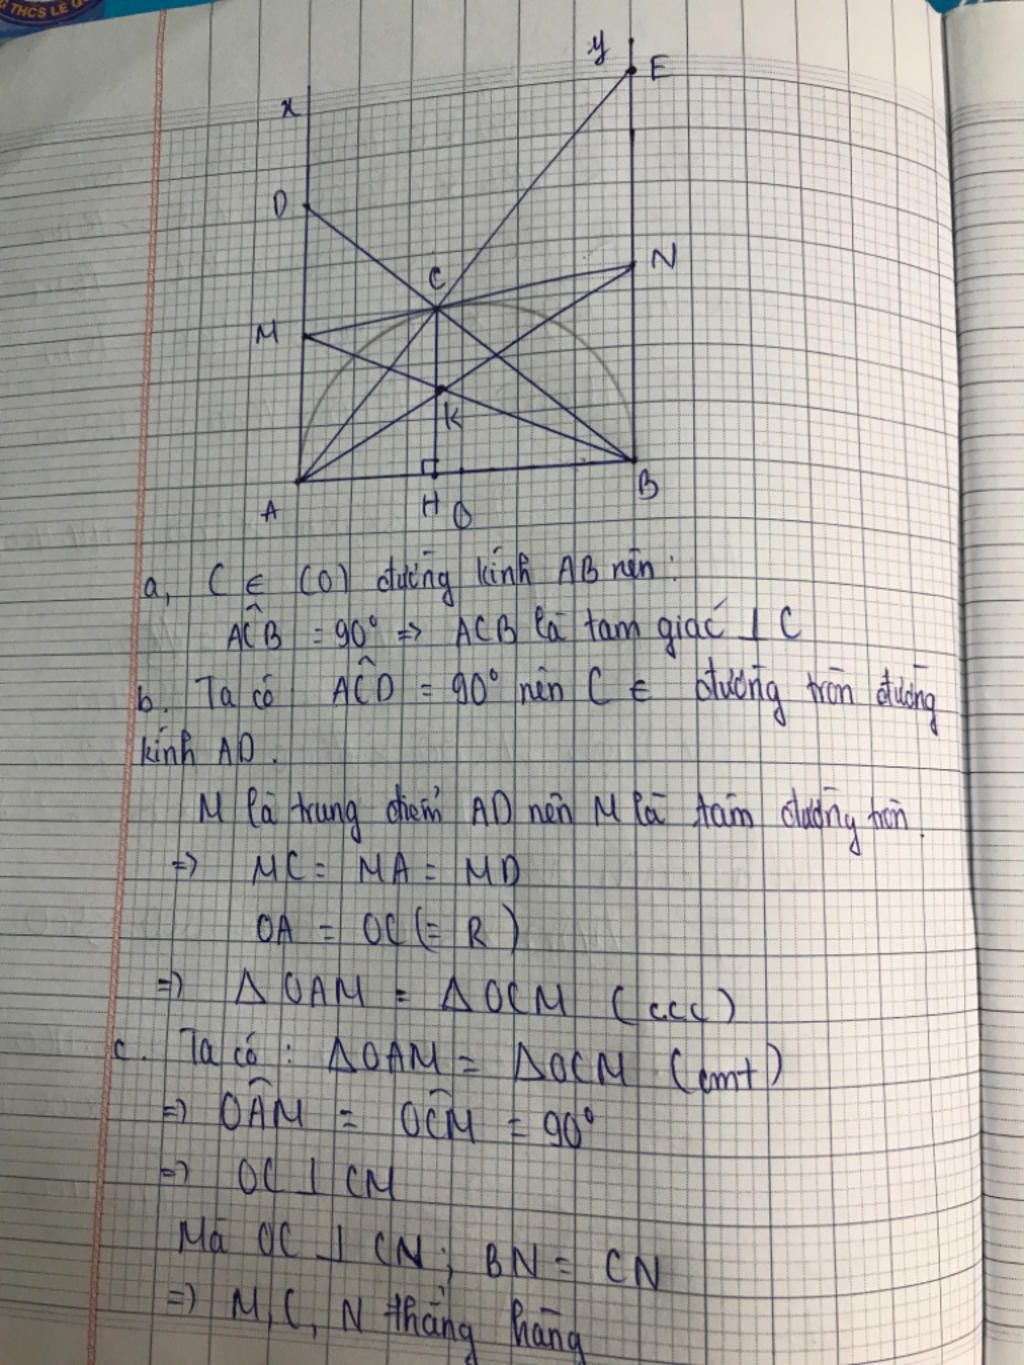 THCS LÊ
y
E
x
D
C
N
M
K
A
H
O
B
a, C ∈ (O) đường kính AB nên:
ACB = 90° => ACB là tam giác ⊥ C
b. Ta có ACD = 90° nên C ∈ đường tròn đường
kính AD.
M là trung điểm AD nên M là tâm đường tròn.
=> MC = MA = MD
OA = OC (= R)
=> Δ OAM = Δ OCM (ccc)
c. Ta có: ΔOAM = ΔOCM (cmt)
=> OAM = OCM = 90°
=> OC ⊥ CM
Mà OC ⊥ CN; BN = CN
=> M, C, N thẳng hàng